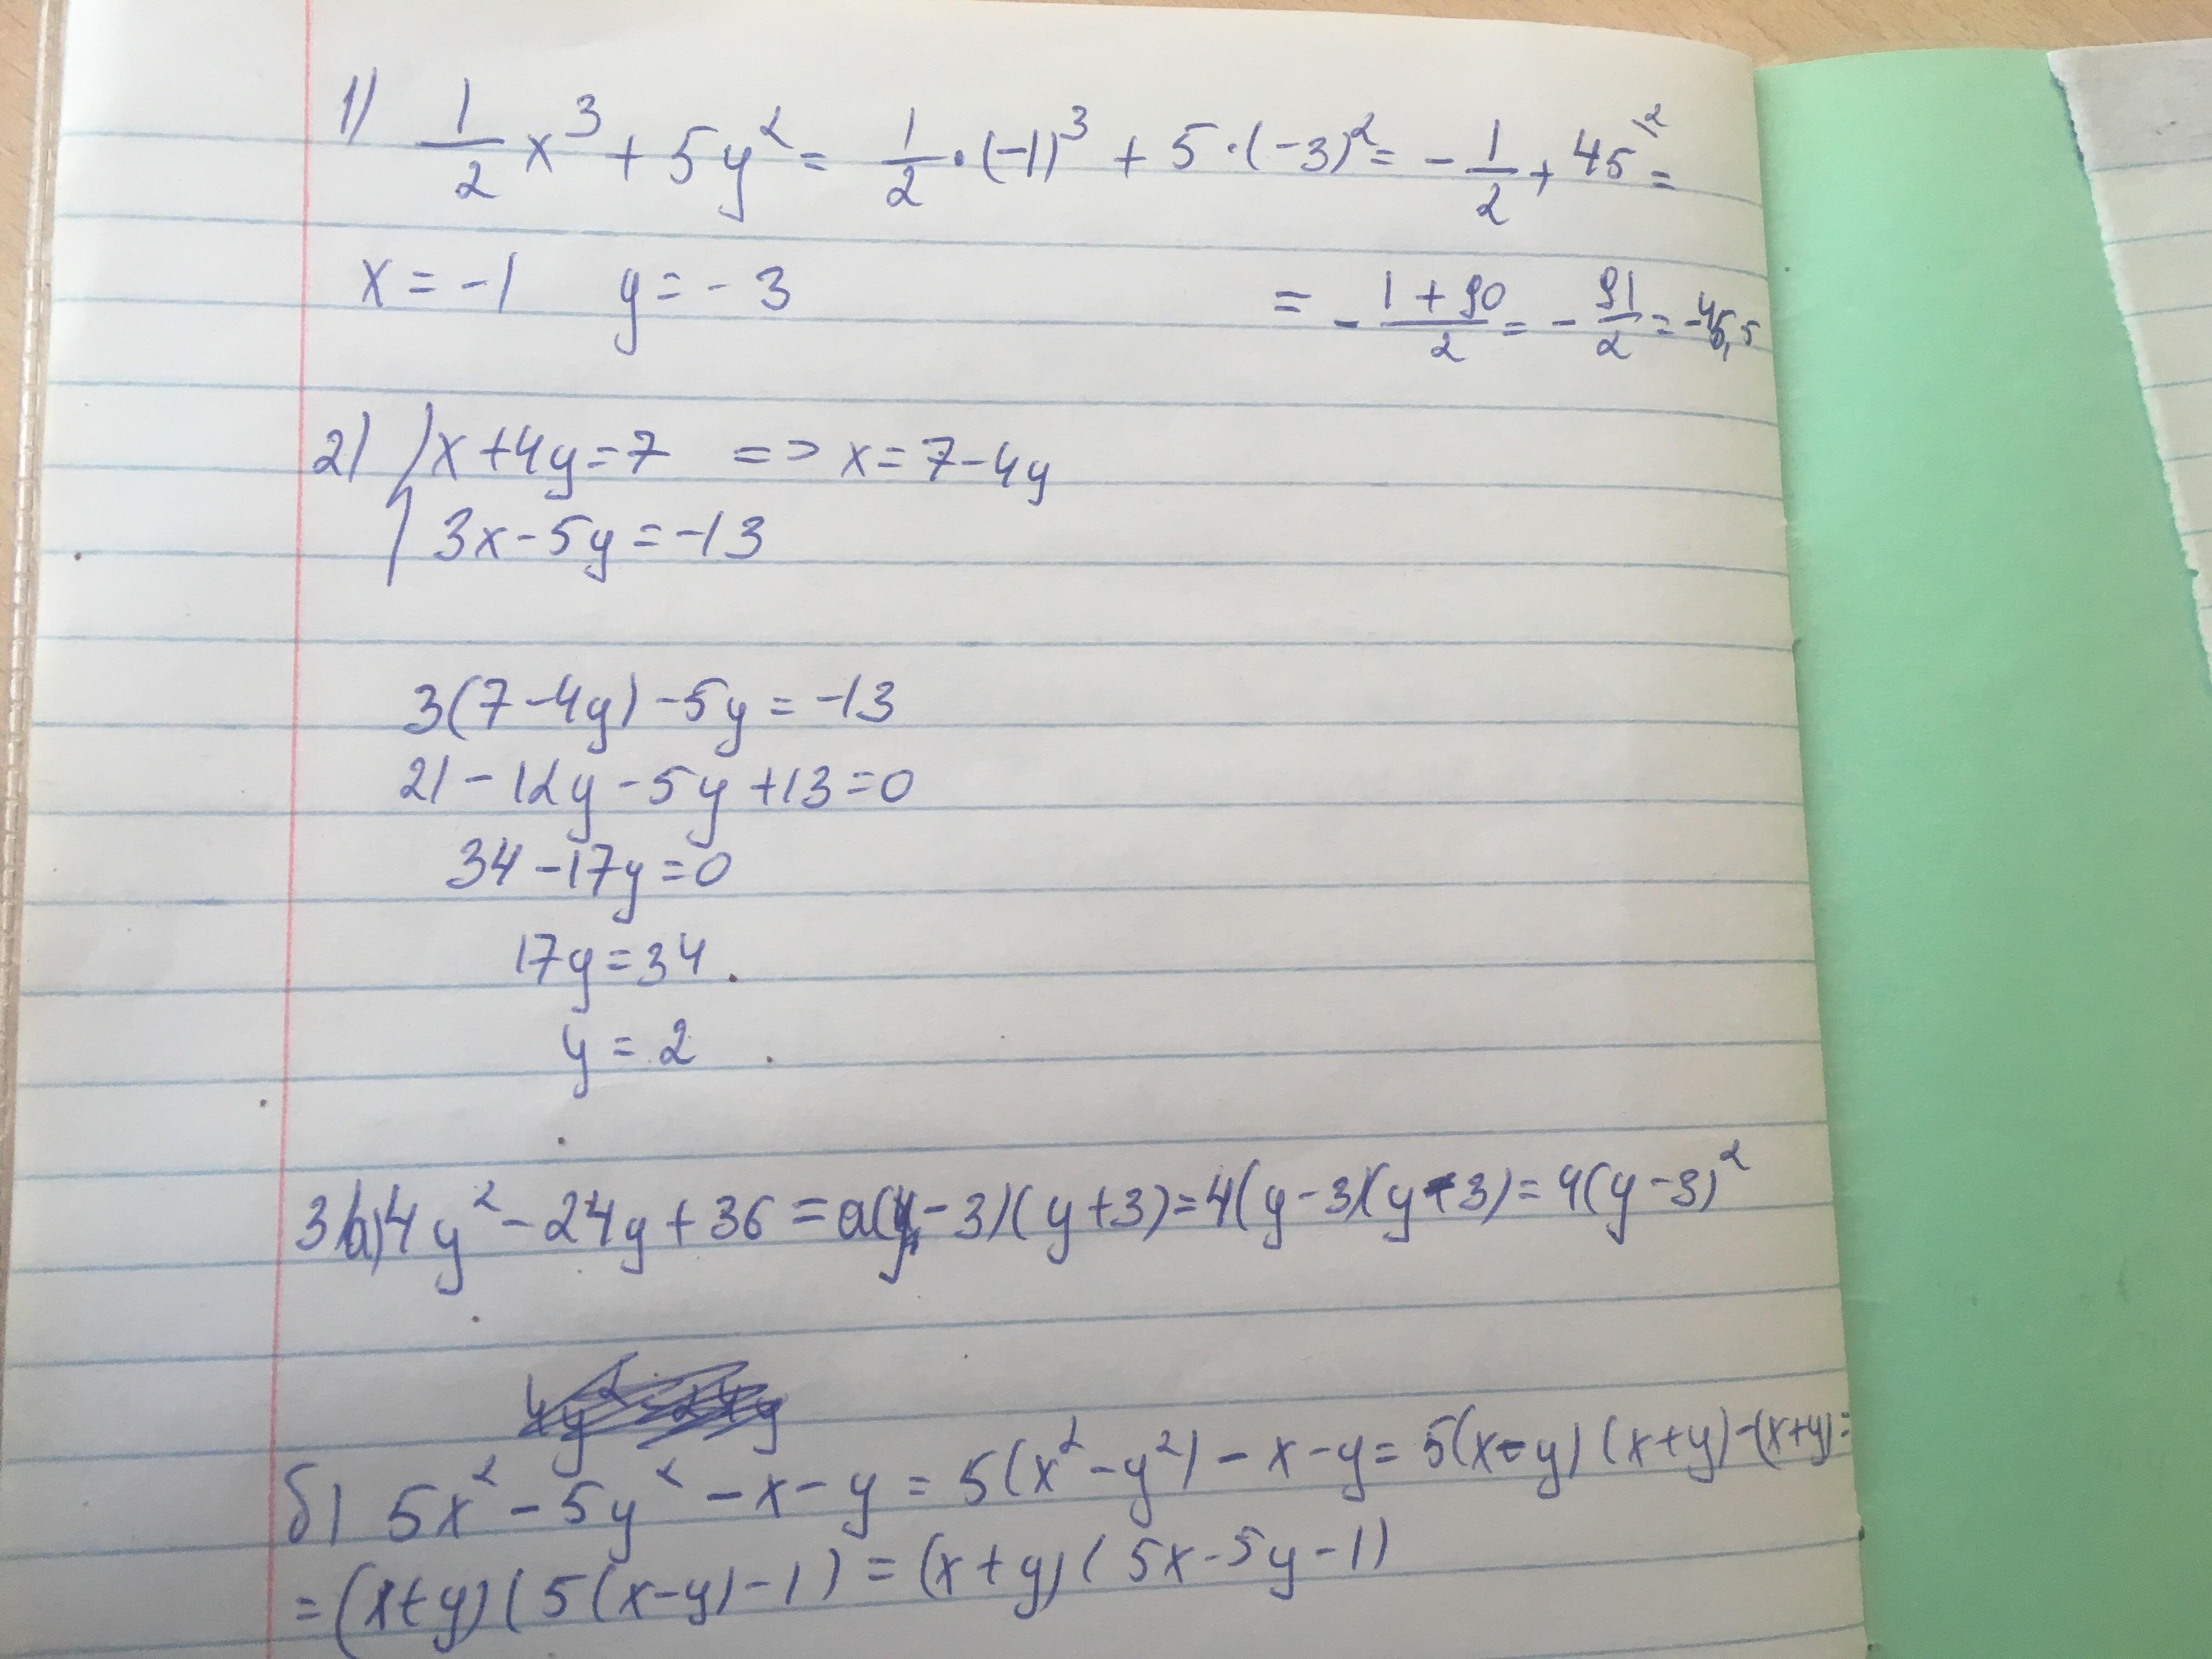 1) 1/2 x³ + 5y² = 1/2 · (-1)³ + 5 · (-3)² = - 1/2 + 45\² =
x = -1 y = -3 = - (1 + 90)/2 = - 91/2 = -45,5
2) { x + 4y = 7 => x = 7 - 4y
3x - 5y = -13
3(7 - 4y) - 5y = -13
21 - 12y - 5y + 13 = 0
34 - 17y = 0
17y = 34
y = 2
3) a) 4y² - 24y + 36 = a(y - 3)(y + 3) = 4(y - 3)(y - 3) = 4(y - 3)²
б) 5x² - 5y² - x - y = 5(x² - y²) - x - y = 5(x - y)(x + y) - (x + y) =
= (x + y)(5(x - y) - 1) = (x + y)(5x - 5y - 1)